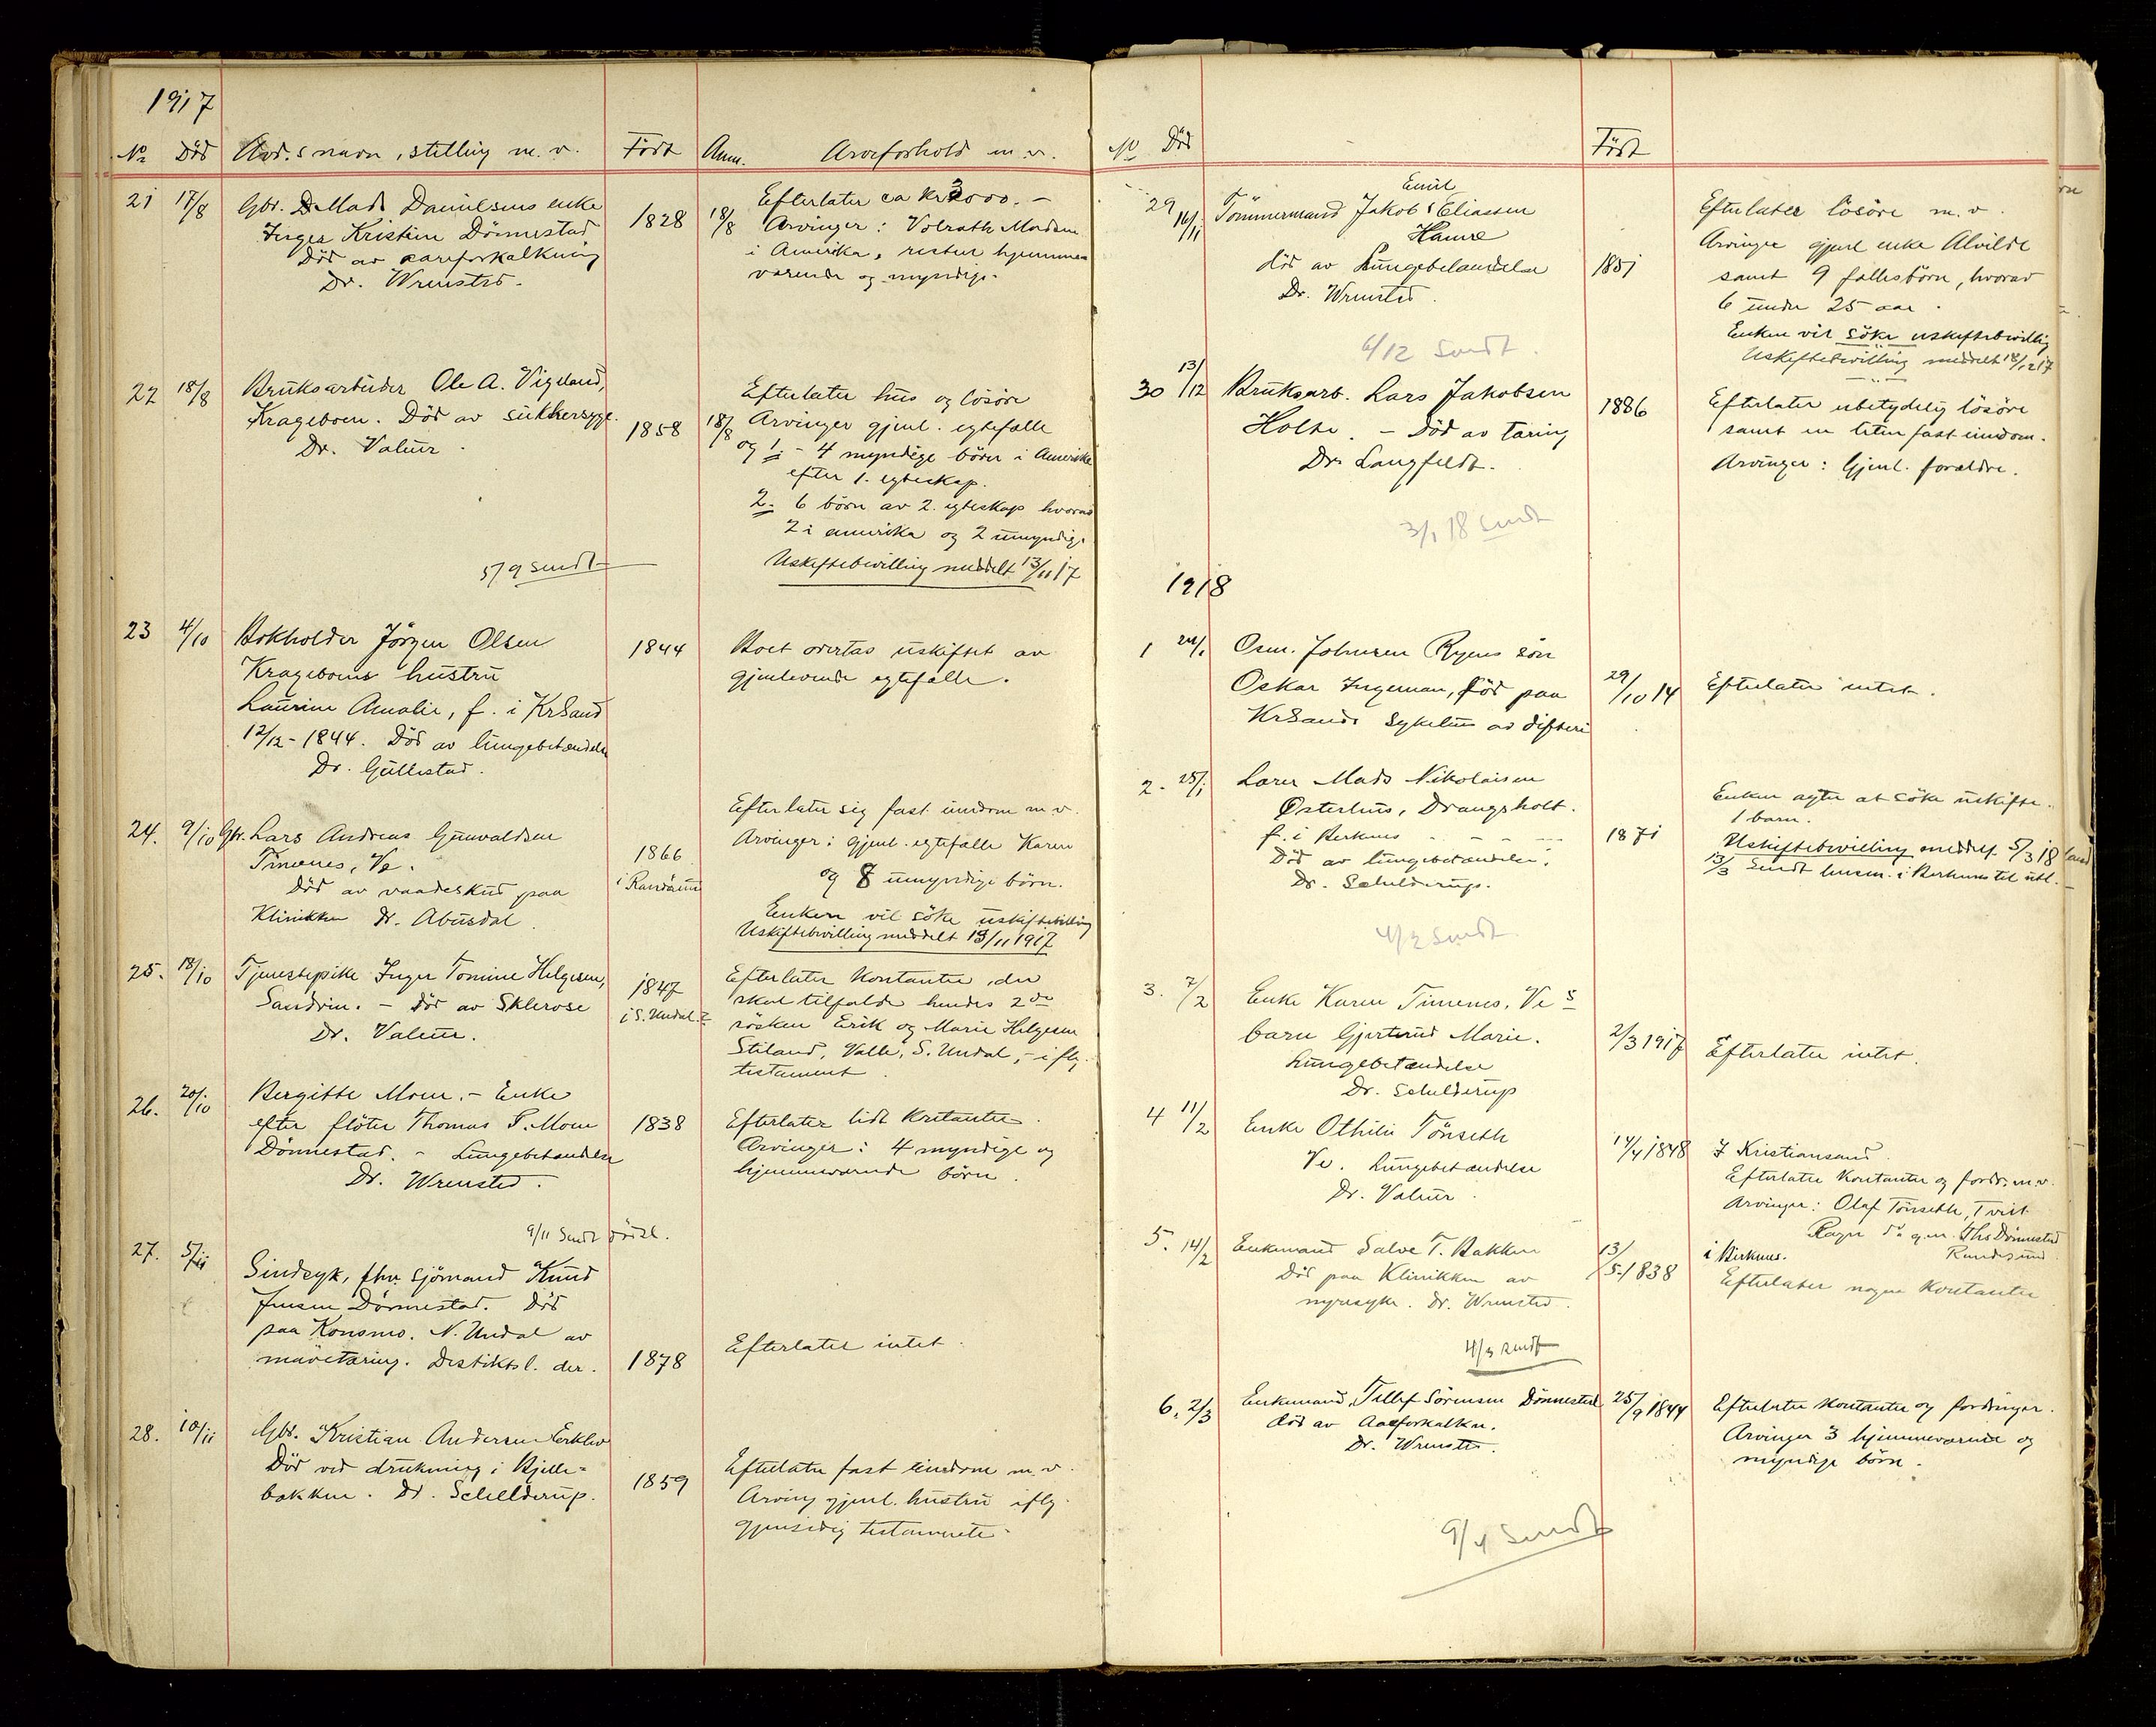 1917
No Död Avd.s navn, stilling m. v. Födt Anm. Arveforhold m. v.
21 17/8 Gbr. Mads Danielsens enke
Inger Kristine Dönnestad
Död av aareforkalkning
Dr. Wrensted.
1828
18/8 Efterlater ca kr 3000.-
Arvinger: Volrath Madsen
i Amerika, resten hjemme-
værende og myndige.
22 18/8 Bruksarbeider Ole A. Vigeland,
Krageboen. Död av sukkersyge.
Dr. Valeur.
1858
18/8 Efterlater hus og lösöre
Arvinger gjenl. egtefælle
og 1. - 4 myndige börn i Amerika
efter 1. egteskap.
2. 6 börn av 2. egteskap hvorav
2 i amerika og 2 umyndige
Uskiftebevilling meddelt 13/11 17
5/9 sendt
23 4/10 Bokholder Jörgen Olsen
Krageboens hustru
Laurine Amalie, f. i KrSand
12/12 - 1844. Död av lungebetændelse
Dr. Gullestad.
1844
Boet overtas uskiftet av
gjenlevende egtefælle.
24. 9/10 Gbr. Lars Andreas Gunvaldsen
Timenes, Ve.
Död av vaadeskud paa
Klinikken Dr. Abusdal.
1866
i Randösund
Efterlater sig fast eiendom m. v.
Arvinger: gjenl. egtefælle Karen
og 8 umyndige börn.
Enken vil söke uskiftebevilling
Uskiftebevilling meddelt 13/11 1917
25. 18/10 Tjenestepike Inger Tomine Helgesen,
Sandvin. - Död av Sklerose
Dr. Valeur.
1847
i S. Undal.
Efterlater Kontanter, der
skal tilfalde hendes 2de
sösken Erik og Marie Helgesen
Stiland, Valle, S. Undal, - ifly.
testament.
26. 20/10 Bergitte Moen. - Enke
efter flöter Thomas P. Moen
Dönnestad. - Lungebetændelse
Dr. Wrensted.
1838
Efterlater lidt Kontanter.
Arvinger: 4 myndige og
hjemmeværende börn.
9/11 Sendt
27. 5/11 Sindsyk, fhv. sjömand Knud
Jensen Dönnestad. Död
paa Konsmo. N. Undal av
mavetæring. Distiktsl. der.
1878
Efterlater intet.
28. 10/11 Gbr. Kristian Andersen Erklev
Död ved drukning i Kjelle-
bakken. Dr. Schelderup.
1859
Efterlater fast eiendom m. v.
Arving gjenl. hustru ifly.
gjensidig testamente.
No Död Födt
29 16/11 Tömmermand Jakob Emil Eliassen
Hamre
död av Lungebetændelse
Dr. Wrensted.
1851
Efterlater lösöre m. v.
Arvinger gjenl enke Alvilde
samt 9 fællesbörn, hvorav
6 under 25 aar.
Enken vil söke uskiftebevillig
Uskiftebevilling meddelt 18/12 17
6/12 Sendt.
30 13/12 Bruksarb. Lars Jakobsen
Holte. - Död av tæring
Dr. Langfeldt.
1886
Efterlater ubetydelig lösöre
samt en liten fast eiendom.
Arvinger: Gjenl. forældre.
3/1 18 Sendt
1918
1 24/1 Osm. Johnsen Ryens sön
Oskar Ingeman, död paa
KrSands sykehus av difteri
29/10 14
Efterlater intet.
2. 25/1 Lærer Mads Nikolaisen
Østerhus, Drangsholt.
f. i Birkenes
Död av lungebetændelse.
Dr. Schelderup.
1871
Enken agter at söke uskifte.
1 barn.
Uskiftebevilling meddelt 5/3 18
13/3 Sendt lensm. i Birkenes til utl.
4/2 Sendt.
3. 7/2 Enke Karen Timenes, Ve s
barn Gjertrud Marie.
Lungebetændelse
Dr. Schelderup
2/3 1917
Efterlater intet.
4 11/2 Enke Othilie Tönseth
Ve. Lungebetændelse
Dr. Valeur.
14/4 1848
I Kristiansand.
Efterlater Kontanter og fordr. m. v.
Arvinger: Olaf Tönseth, Tveit
Ragn do g.m. Ths Dönnestad
Randesund
5. 14/2 Enkemand Salve T. Bakken
Död paa Klinikken av
nyresyke. Dr. Wrensted.
13/5 1838
i Birkenes.
Efterlater nogen Kontanter
4/3 sendt
6. 2/3 Enkemand, Tellef Sörensen Dönnestad
död av Aareforkalkn.
Dr. Wrensted.
25/9 1844
Efterlater Kontanter og fordringer.
Arvinger 3 hjemmeværende og
myndige börn.
9/4 Sendt